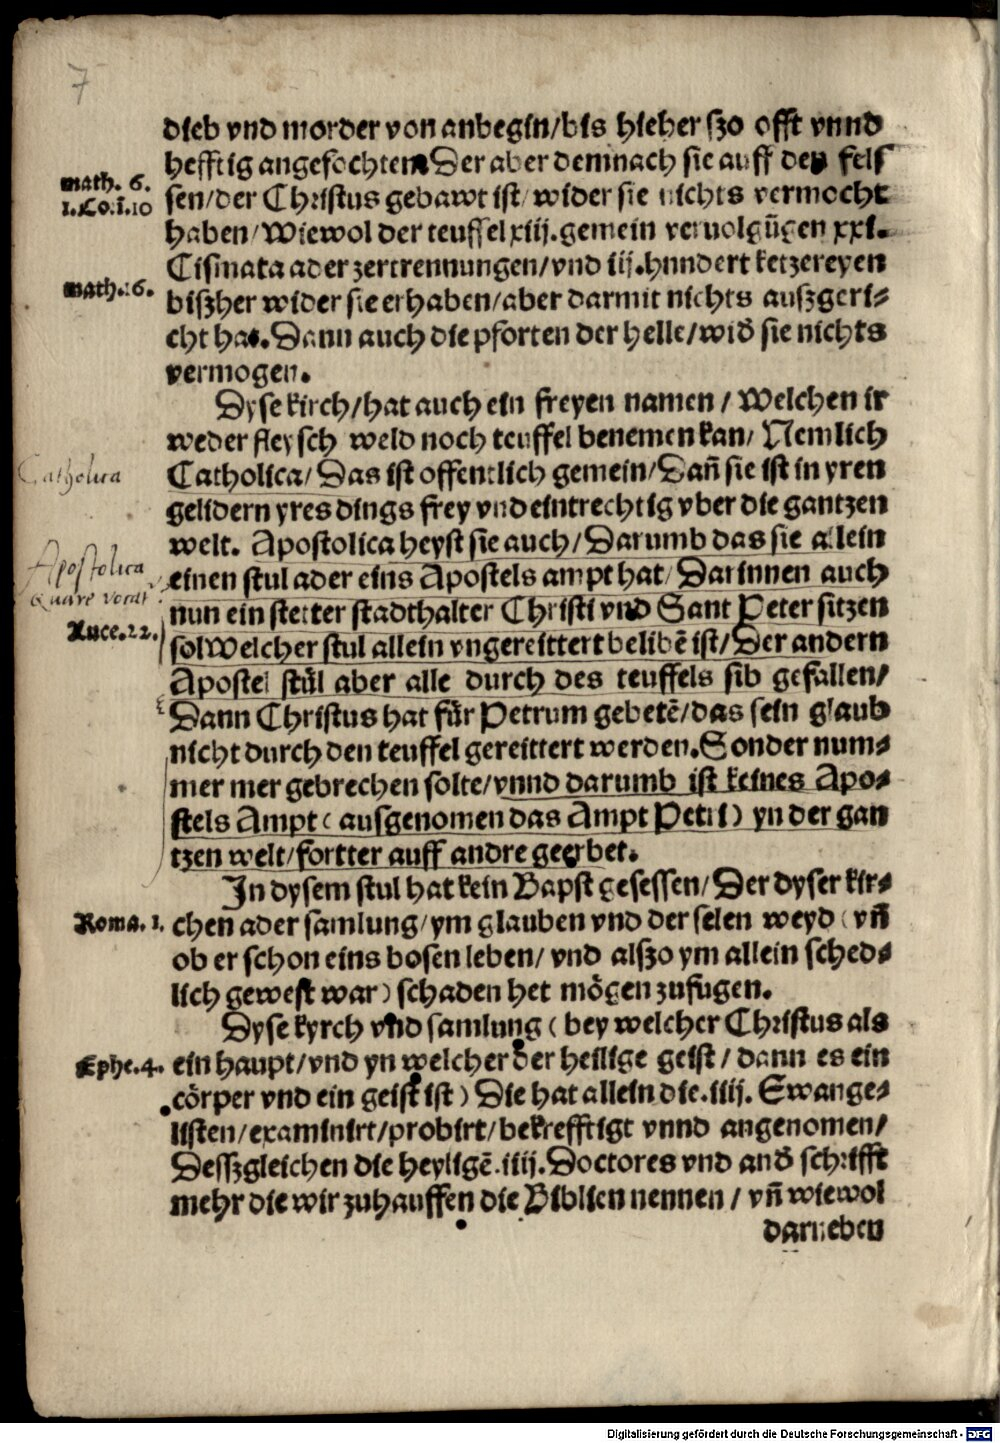 7
dieb vnd morder von anbegin/bis hieher szo offt vnnd
hefftig angefochten. Der aber demnach sie auff den fels
math. 6.
sen/der Christus gebawt ist/wider sie nichts vermocht
1.Co.i.10
haben/Wiewol der teuffel xiij.gemein veruolgūgen xxi.
Cismata ader zertrennungen/vnd iij.hnndert ketzereyen
math.16.
biszher wider sie erhaben/aber darmit nichts auszgeri-
cht hat.Dann auch die pforten der helle/wid̄ sie nichts
vermogen.
Dyse kirch/hat auch ein freyen namen/Welchen ir
weder fleysch weld noch teuffel benemen kan/Nemlich
Catholica
Catholica/Das ist offentlich gemein/Dañ sie ist in yren
gelidern yres dings frey vnd eintrechtig vber die gantzen
welt. Apostolica heyst sie auch/Darumb das sie allein
Apostolica
einen stul ader eins Apostels ampt hat/Darinnen auch
Quare vocat
nun ein stetter stadthalter Christi vnd Sant Peter sitzen
Luce.22.
sol Welcher stul allein vngereittert belibē ist/Der andern
Apostel stůl aber alle durch des teuffels sib gefallen/
Dann Christus hat für Petrum gebetē/das sein glaub
nicht durch den teuffel gereittert werden.Sonder num-
mer mer gebrechen solte/vnnd darumb ist keines Apo-
stels Ampt(ausgenomen das Ampt Petri) yn der gan
tzen welt/fortter auff andre geerbet.
In dysem stul hat kein Bapst gesessen/Der dyser kir-
Roma. 1.
chen ader samlung/ym glauben vnd der selen weyd(vñ
ob er schon eins bosen leben/vnd alszo ym allein sched-
lich gewest war)schaden het mögen zufugen.
Dyse kyrch vnd samlung(bey welcher Christus als
Ephe.4.
ein haupt/vnd yn welcher der heilige geist/dann es ein
cörper vnd ein geist ist)Die hat allein die.iiij. Ewange-
listen/examinirt/probirt/bekrefftigt vnnd angenomen/
Desszgleichen die heyligē.iiij.Doctores vnd and̄ schrifft
mehr die wir zuhauffen die Biblien nennen/vñ wiewol
darneben
Digitalisierung gefördert durch die Deutsche Forschungsgemeinschaft - DFG